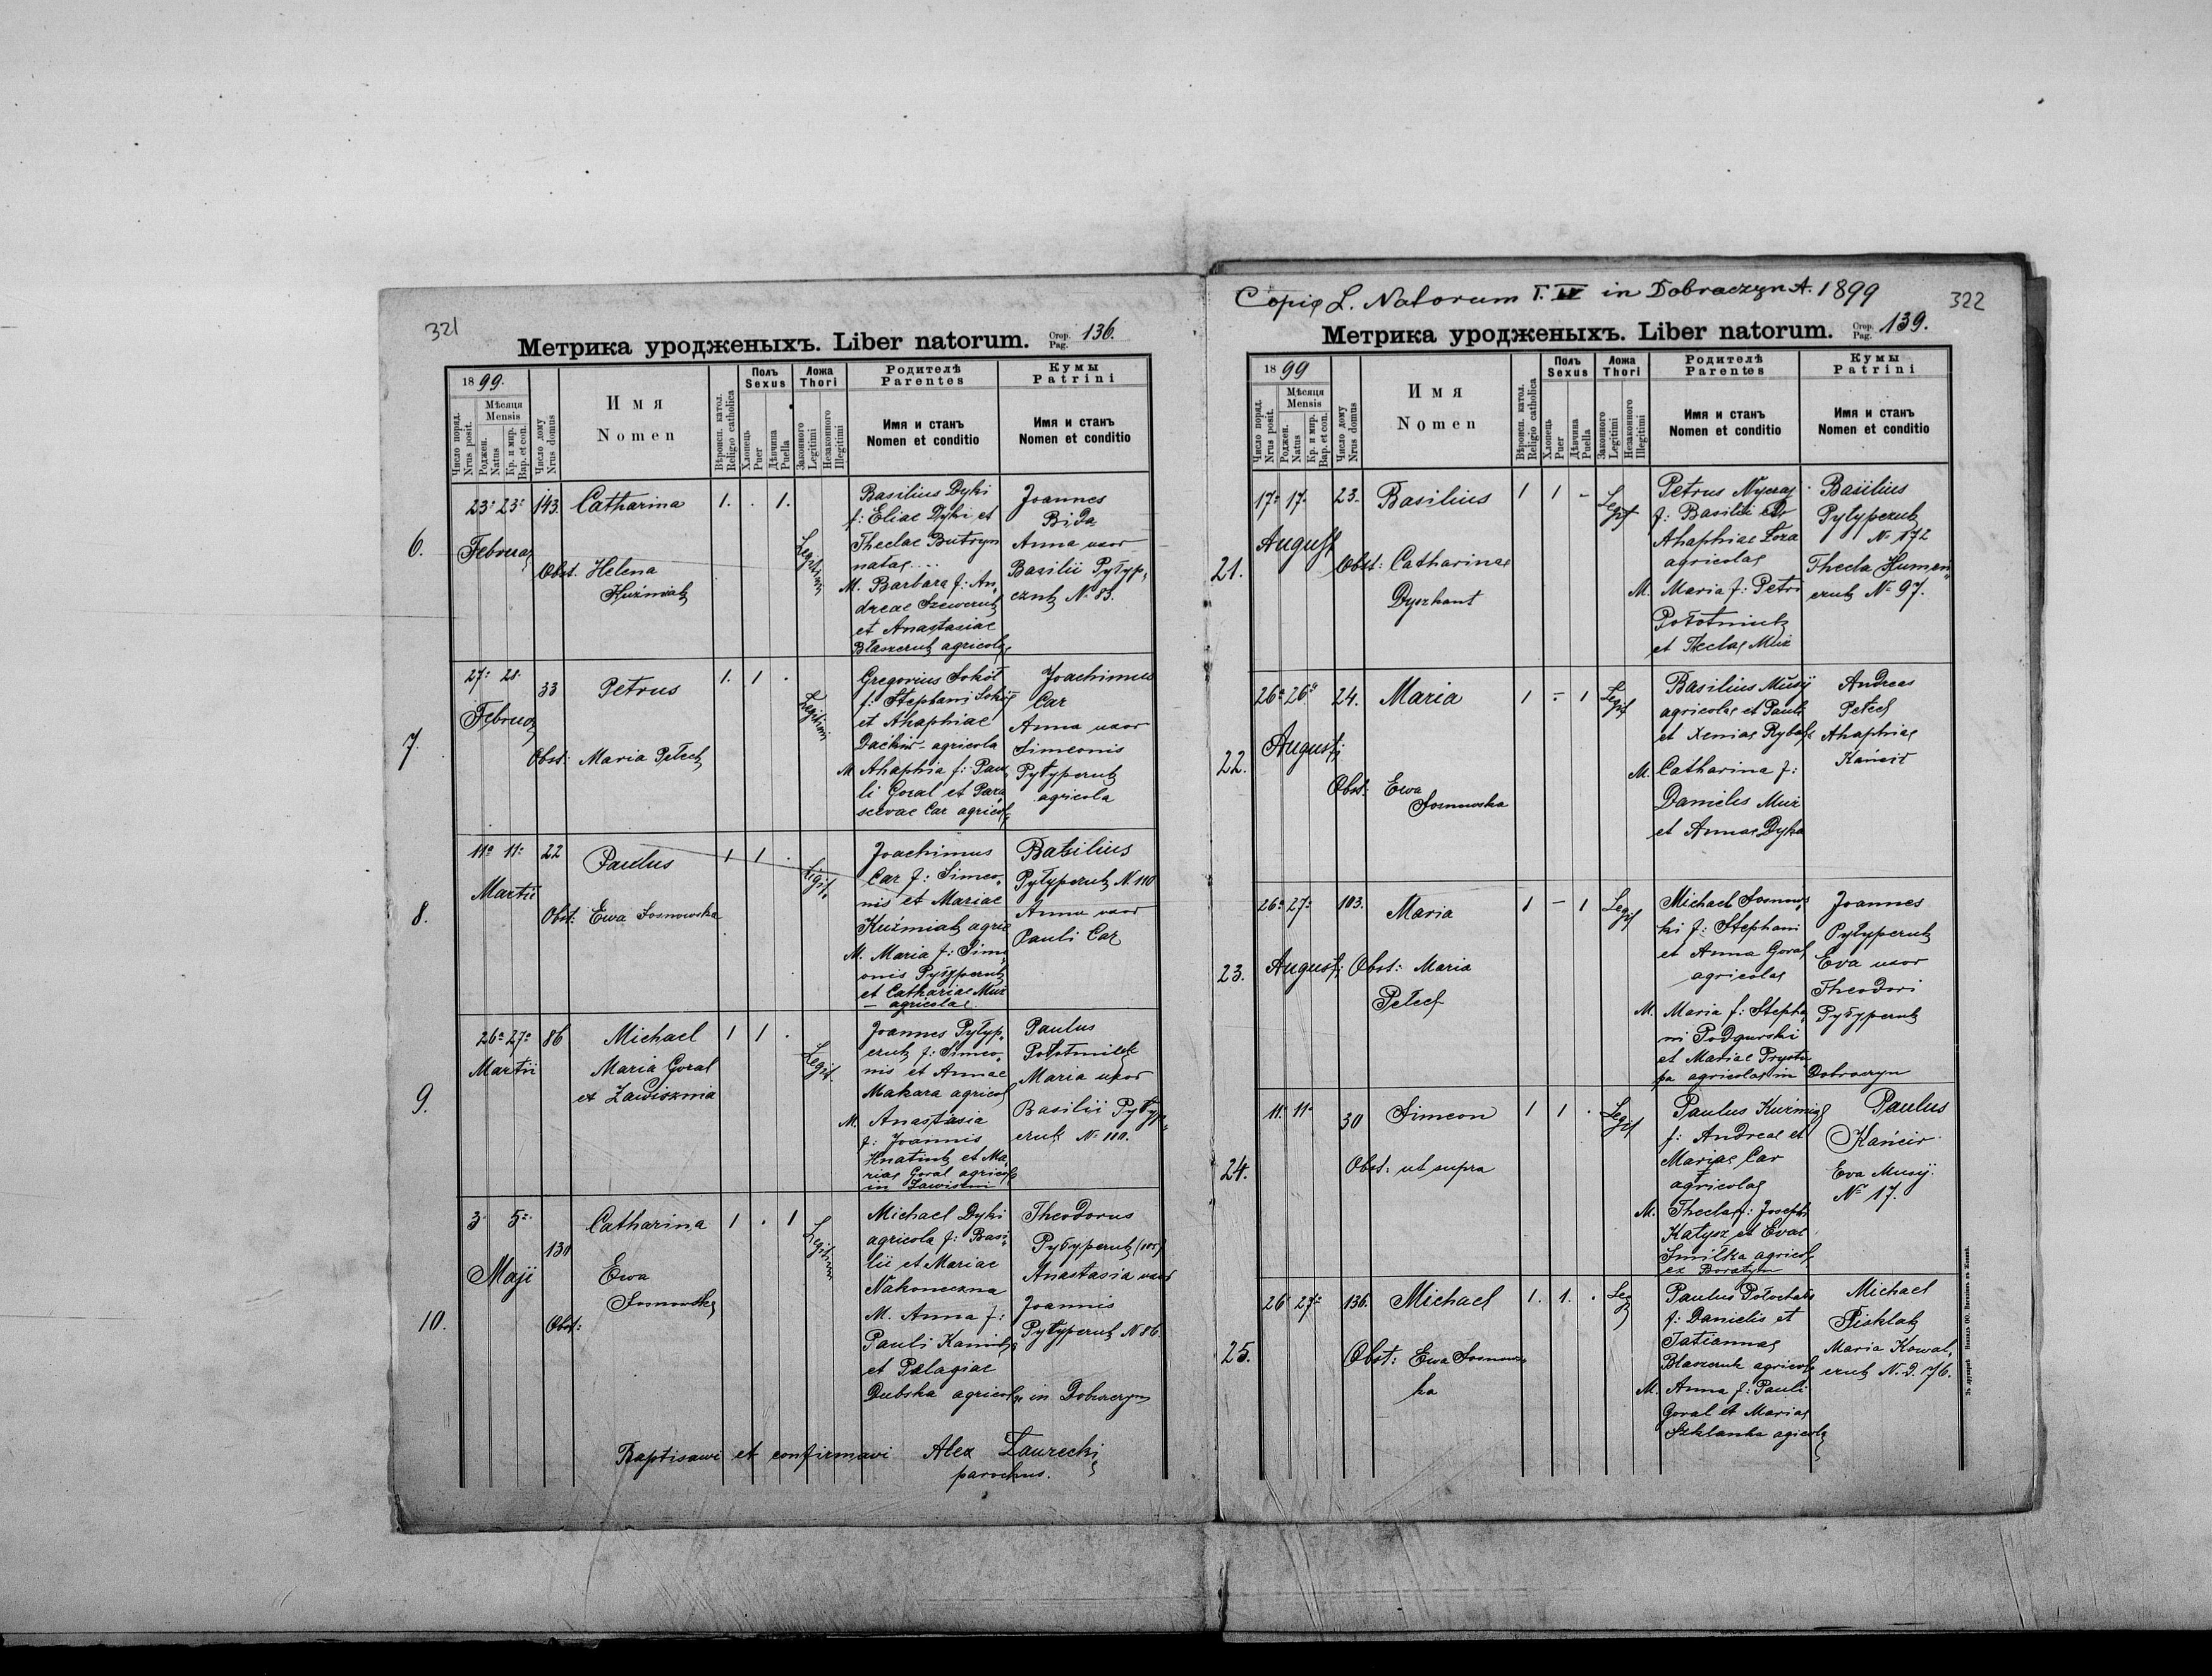 321
Метрика уродженыхъ. Liber natorum. Стор. Pag. 136.
1899.
Число поряд. Nrus posit.
Мѣсяця Mensis
Роджен. Natus
Кр. и мир. Bap. et con.
Число дому Nrus domus
Имя
Nomen
Вѣроисп. катол. Religio catholica
Полъ
Sexus
Хлопець Puer
Дѣвчина Puella
Ложа
Thori
Законного Legitimi
Незаконного Illegitimi
Родителѣ
Parentes
Имя и станъ
Nomen et conditio
Кумы
Patrini
Имя и станъ
Nomen et conditio
6.
23. 23. 143. Catharina 1. . 1.
Obst. Helena
Basilius Dyki
f: Eliae Dyki et
Theclae Butryn
natae....
M. Barbara f: An
dreae Szewczuk
et Anastasiae
Błaszczuk agricolae
Joannes
Bida
Anna uxor
Basilii Pyłyp
czuk № 83.
7.
27. 28. 33 Petrus 1. 1 .
Obst: Maria Pełech
Gregorius Sokół
f: Stephani Sokół
et Ahaphiae
agricola
M. Ahaphia f: Pau
li Goral et Para
scevae Car agricol
Joachimus
Car
Anna uxor
Simeonis
Pyłypczuk
agricola
8.
11. 11. 22 Paulus 1 1 .
Martii
Obst: Ewa Sosnowska
Legit.
Joachimus
Car f: Simeo
nis et Mariae
Kuźmiak agric
M. Maria f: Sime
onis Pyłypczuk
et Cathariae Muz
agricolae.
Basilius
Pyłypczuk № 110
Anna uxor
Pauli Car
9.
26. 27. 86 Michael 1 1 .
Martii
Maria Goral
et Zawisznia
Legit.
Joannes Pyłyp
czuk f: Simeo
nis et Annae
Makara agricol
M. Anastasia
f: Joannis
Hnatiuk et Ma
riae Goral agricol
in Zawiszni
Paulus
Maria uxor
Basilii Pyłyp
czuk № 110.
10.
3. 5. 130 Catharina 1 . 1
Maji
Obst: Ewa
Sosnowska
Michael Dyki
agricola f: Basi
lii et Mariae
Nakoneczna
M. Anna f:
Pauli
et Pelagiae
Dubska agricolae in Dobraczyn
Theodorus
Pyłypczuk (105)
Anastasia uxor
Joannis
Pyłypczuk № 86.
Baptisawi et confirmavi Alex Laurecki
parochus.
Copia L. Natorum T. IV in Dobraczyn A. 1899
322
Метрика уродженыхъ. Liber natorum. Стор. Pag. 139.
1899
Число поряд. Nrus posit.
Мѣсяця Mensis
Роджен. Natus
Кр. и мир. Bap. et con.
Число дому Nrus domus
Имя
Nomen
Вѣроисп. катол. Religio catholica
Полъ
Sexus
Хлопець Puer
Дѣвчина Puella
Ложа
Thori
Законного Legitimi
Незаконного Illegitimi
Родителѣ
Parentes
Имя и станъ
Nomen et conditio
Кумы
Patrini
Имя и станъ
Nomen et conditio
21.
17. 17. 23. Basilius 1 1 -
Obst: Catharinae
Legit
Petrus
f: Basilii et
Ahaphiae Łoza
agricolae
M. Maria f: Petri
et Theclae Muz
Basilius
Pyłypczuk
№ 172
Thecla Humen
czuk № 97.
22.
26. 26. 24. Maria 1 - 1
Augusti
Obst: Ewa
Sosnowska
Legit
Basilius Musij
agricolae et Pauli
et Xenias Rybak
M. Catharina f:
Danielis Muz
et Annae Dyka
Andreas
Pełech
Ahaphiae
23.
26. 27. 103. Maria 1 - 1
Augusti Obst: Maria
Pełech
Legit
Michael Sosnows
ki f: Stephani
et Anna Goral
agricolae
M. Maria f: Stepha
ni Podgurski
et Mariae Prystu
pa agricolae in Dobraczyn
Joannes
Pyłypczuk
Eva uxor
Theodori
Pyłypczuk
24.
11. 11. 30 Simeon 1 1 .
Obst: ut supra
Legit
Paulus
f: Andreae et
Mariae Car
agricolae
M. Thecla f: Josephi
Katysz et Evae
agricol
ex Boratyn
Paulus
Eva Musij.
№ 17.
25.
26. 27. 136. Michael 1. 1. .
Obst: Ewa Sosnows
ka
Paulus
f: Danielis et
Tatiannae
Błaszczuk agricolae
M. Anna f: Pauli
Goral et Mariae
Szklanka agicolae
Michael
Maria Kowal
czuk № D. 76.